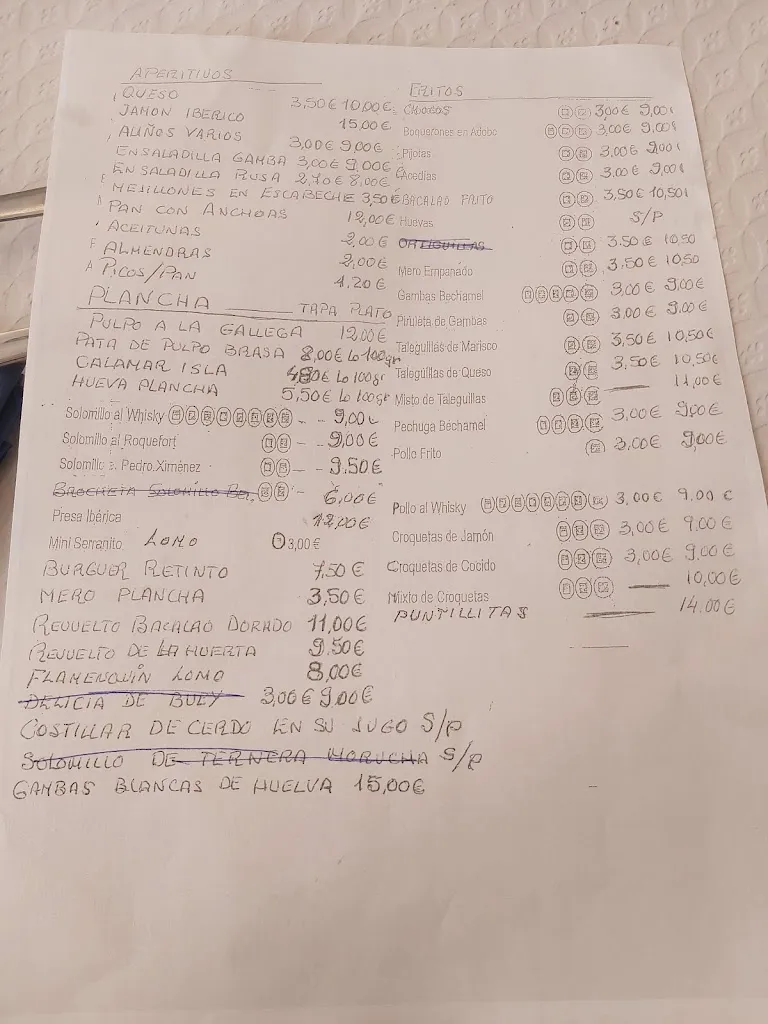 APERITIVOS
QUESO 3,50€ 10,00€
JAMON IBERICO 15,00€
ALIÑOS VARIOS 3,00€ 9,00€
ENSALADILLA GAMBA 3,00€ 9,00€
ENSALADILLA RUSA 2,70€ 8,00€
MEJILLONES EN ESCABECHE 3,50€
PAN CON ANCHOAS 12,00€
ACEITUNAS 2,00€
ALMENDRAS 2,00€
PICOS/PAN 1,20€
PLANCHA TAPA PLATO
PULPO A LA GALLEGA 12,00€
PATA DE PULPO BRASA 8,00€ Lo 100gr
CALAMAR ISLA 4,80€ Lo 100gr
HUEVA PLANCHA 5,50€ Lo 100gr
Solomillo al Whisky - - 9,00€
Solomillo al Roquefort - - 9,00€
Solomillo a. Pedro Ximénez - - 9.50€
BROCHETA SOLOMILLO - 6,00€
Presa Ibérica 12,00€
Mini Serranito LOMO 3,00€
BURGUER RETINTO 7,50€
MERO PLANCHA 3,50€
REVUELTO BACALAO DORADO 11,00€
REVUELTO DE LA HUERTA 9.50€
FLAMENQUÍN LOMO 8,00€
DELICIA DE BUEY 3,00€ 9,00€
COSTILLAR DE CERDO EN SU JUGO S/P
SOLOMILLO DE TERNERA MORUCHA S/P
GAMBAS BLANCAS DE HUELVA 15,00€
FRITOS
CHOCOS 3,00€ 9,00€
Boquerones en Adobo 3,00€ 9,00€
Pijotas 3,00€ 9,00€
Acedías 3,00€ 9,00€
BACALAO FRITO 3,50€ 10,50€
Huevas S/P
ORTIGUILLAS 3.50€ 10,50
Mero Empanado 3,50€ 10,50
Gambas Bechamel 3,00€ 9,00€
Piruleta de Gambas 3,00€ 9,00€
Taleguillas de Marisco 3,50€ 10,50€
Taleguillas de Queso 3,50€ 10,50€
Misto de Taleguillas 11,00€
Pechuga Bechamel 3,00€ 9,00€
Pollo Frito 3,00€ 9,00€
Pollo al Whisky 3,00€ 9,00€
Croquetas de Jamón 3,00€ 9,00€
Croquetas de Cocido 3,00€ 9,00€
Mixto de Croquetas 10,00€
PUNTILLITAS 14.00€